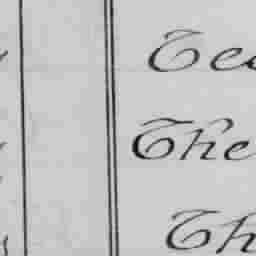 Tea
The
Th